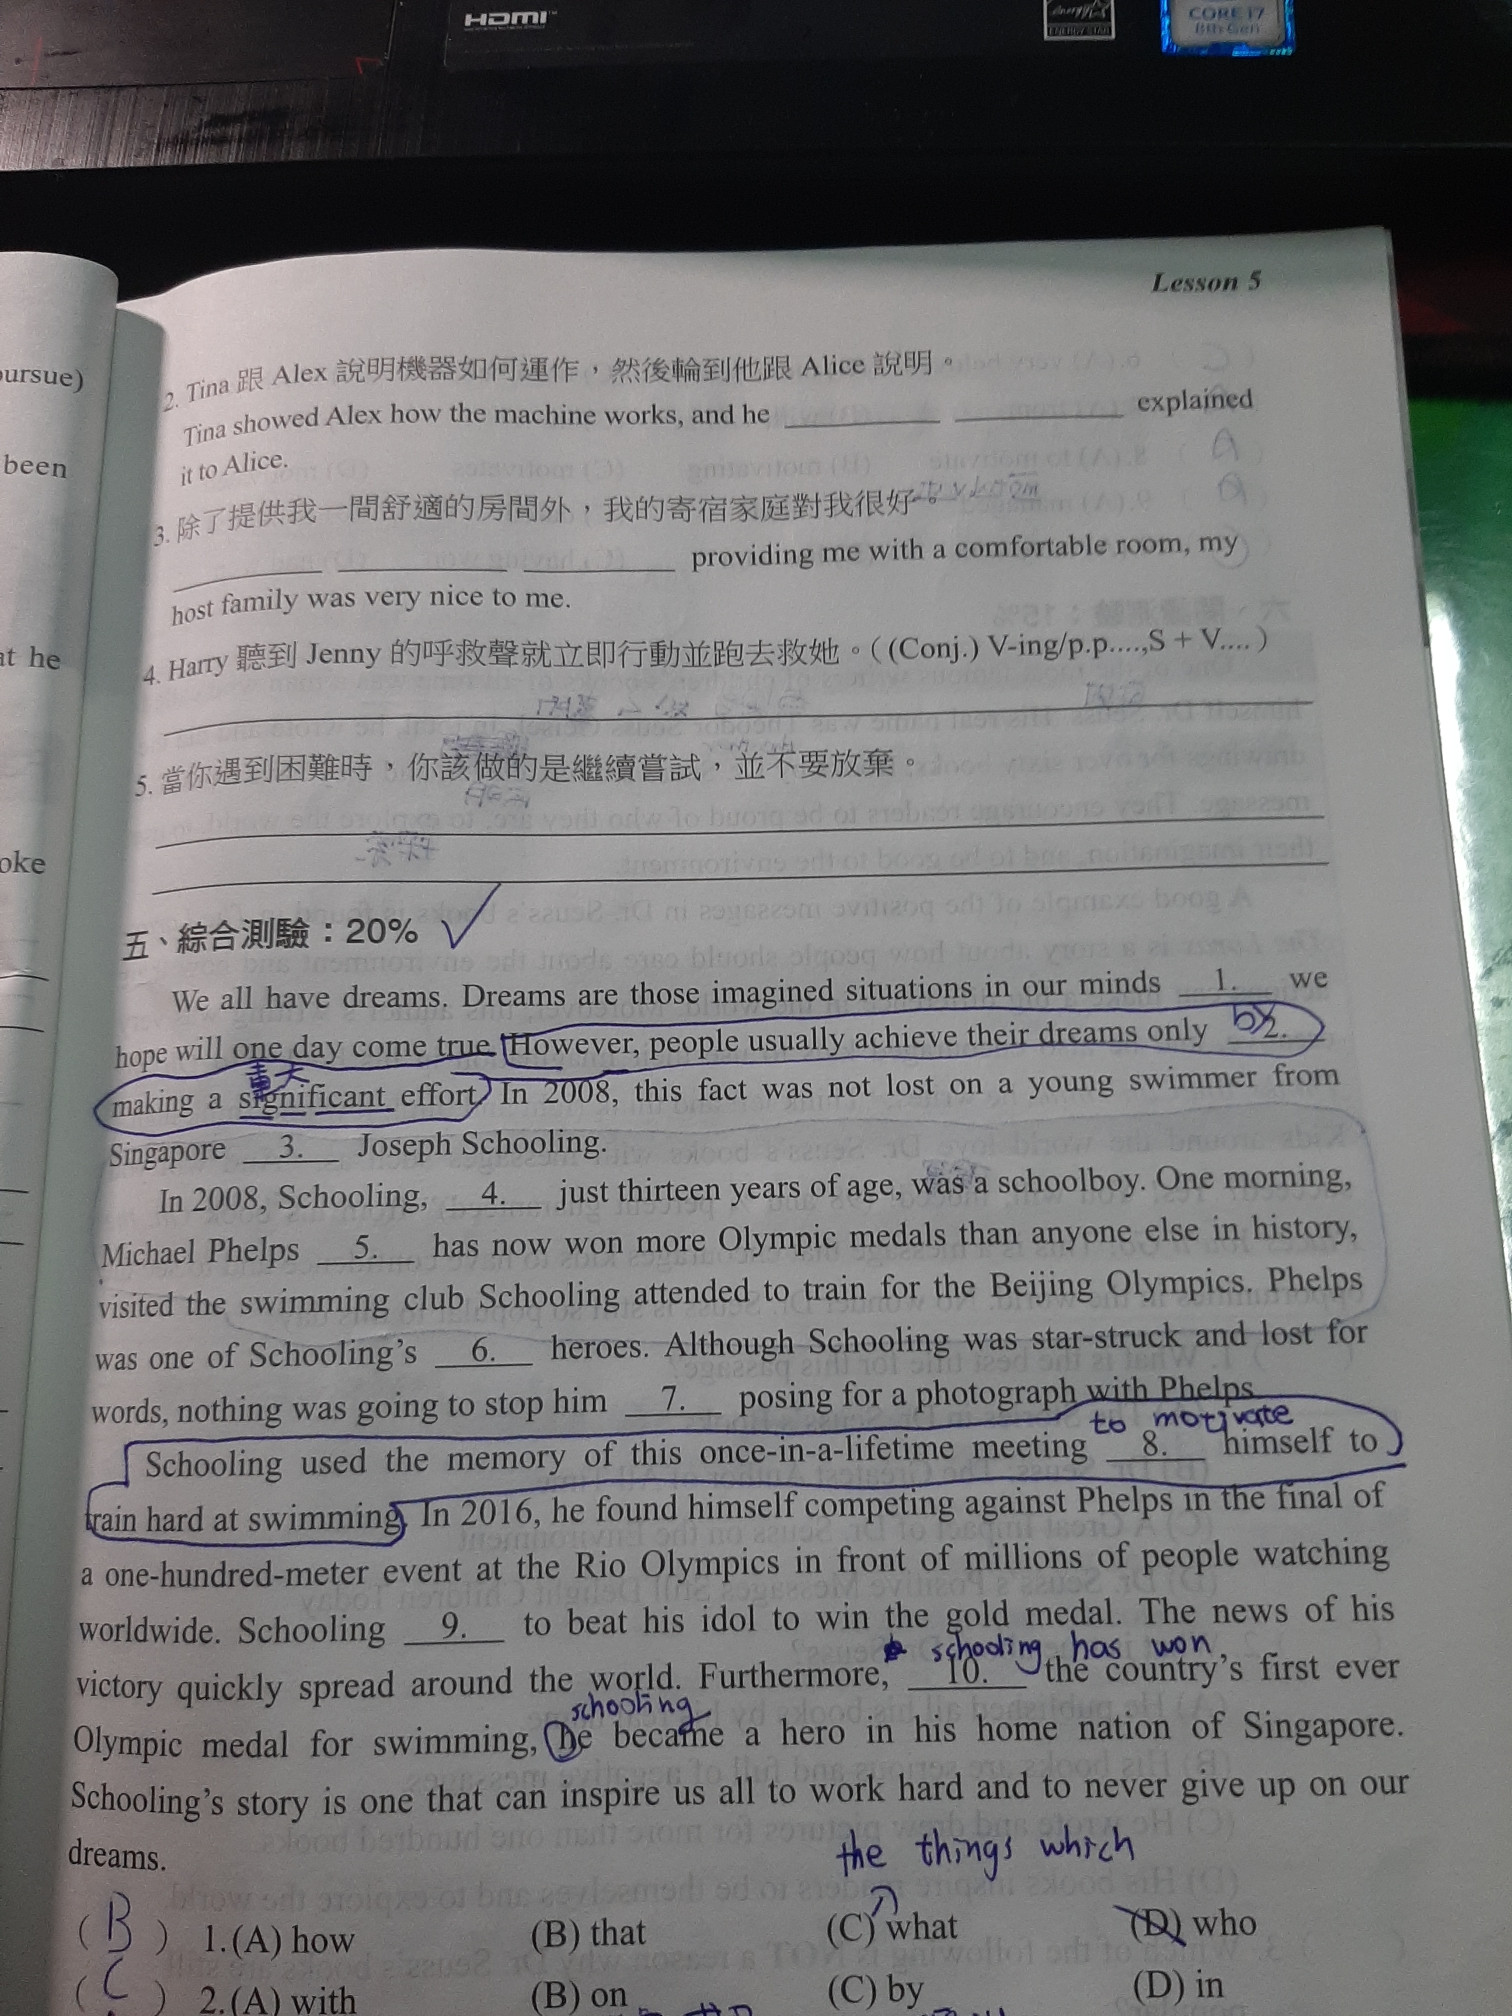 HDMI™
energy
ENERGY STAR
CORE i7
8th Gen
Lesson 5
pursue)
been
at he
oke
2. Tina 跟 Alex 說明機器如何運作，然後輪到他跟 Alice 說明。
Tina showed Alex how the machine works, and he ______ ______ explained
it to Alice.
3. 除了提供我一間舒適的房間外，我的寄宿家庭對我很好。
______ ______ ______ providing me with a comfortable room, my
host family was very nice to me.
4. Harry 聽到 Jenny 的呼救聲就立即行動並跑去救她。（(Conj.) V-ing/p.p....,S + V....）
5. 當你遇到困難時，你該做的是繼續嘗試，並不要放棄。
五、綜合測驗：20% ✓
We all have dreams. Dreams are those imagined situations in our minds 1. we
by
hope will one day come true. However, people usually achieve their dreams only 2.
重大
making a significant effort. In 2008, this fact was not lost on a young swimmer from
Singapore 3. Joseph Schooling.
In 2008, Schooling, 4. just thirteen years of age, was a schoolboy. One morning,
Michael Phelps 5. has now won more Olympic medals than anyone else in history,
visited the swimming club Schooling attended to train for the Beijing Olympics. Phelps
was one of Schooling's 6. heroes. Although Schooling was star-struck and lost for
words, nothing was going to stop him 7. posing for a photograph with Phelps.
to motivate
Schooling used the memory of this once-in-a-lifetime meeting 8. himself to
train hard at swimming. In 2016, he found himself competing against Phelps in the final of
a one-hundred-meter event at the Rio Olympics in front of millions of people watching
worldwide. Schooling 9. to beat his idol to win the gold medal. The news of his
schooling has won
victory quickly spread around the world. Furthermore, 10. the country's first ever
schooling
Olympic medal for swimming, he became a hero in his home nation of Singapore.
Schooling's story is one that can inspire us all to work hard and to never give up on our
dreams.
the things which
( B ) 1. (A) how (B) that (C) what (D) who
( C ) 2. (A) with (B) on (C) by (D) in